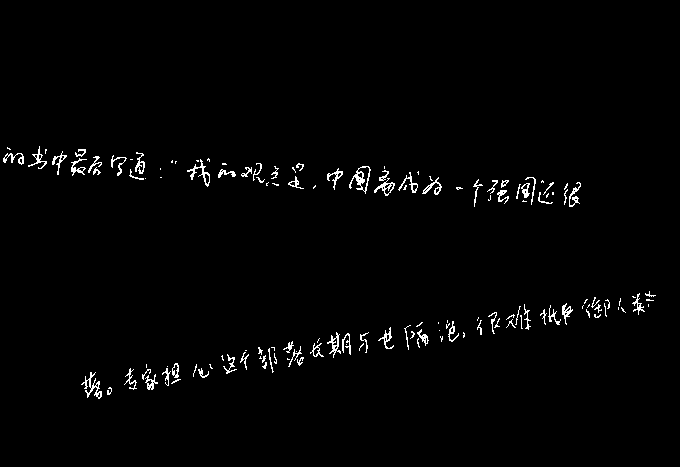 的书中最后写道："我的观点是，中国离成为一个强国还很
落。专家担心这个部落长期与世隔绝，很难抵御人类